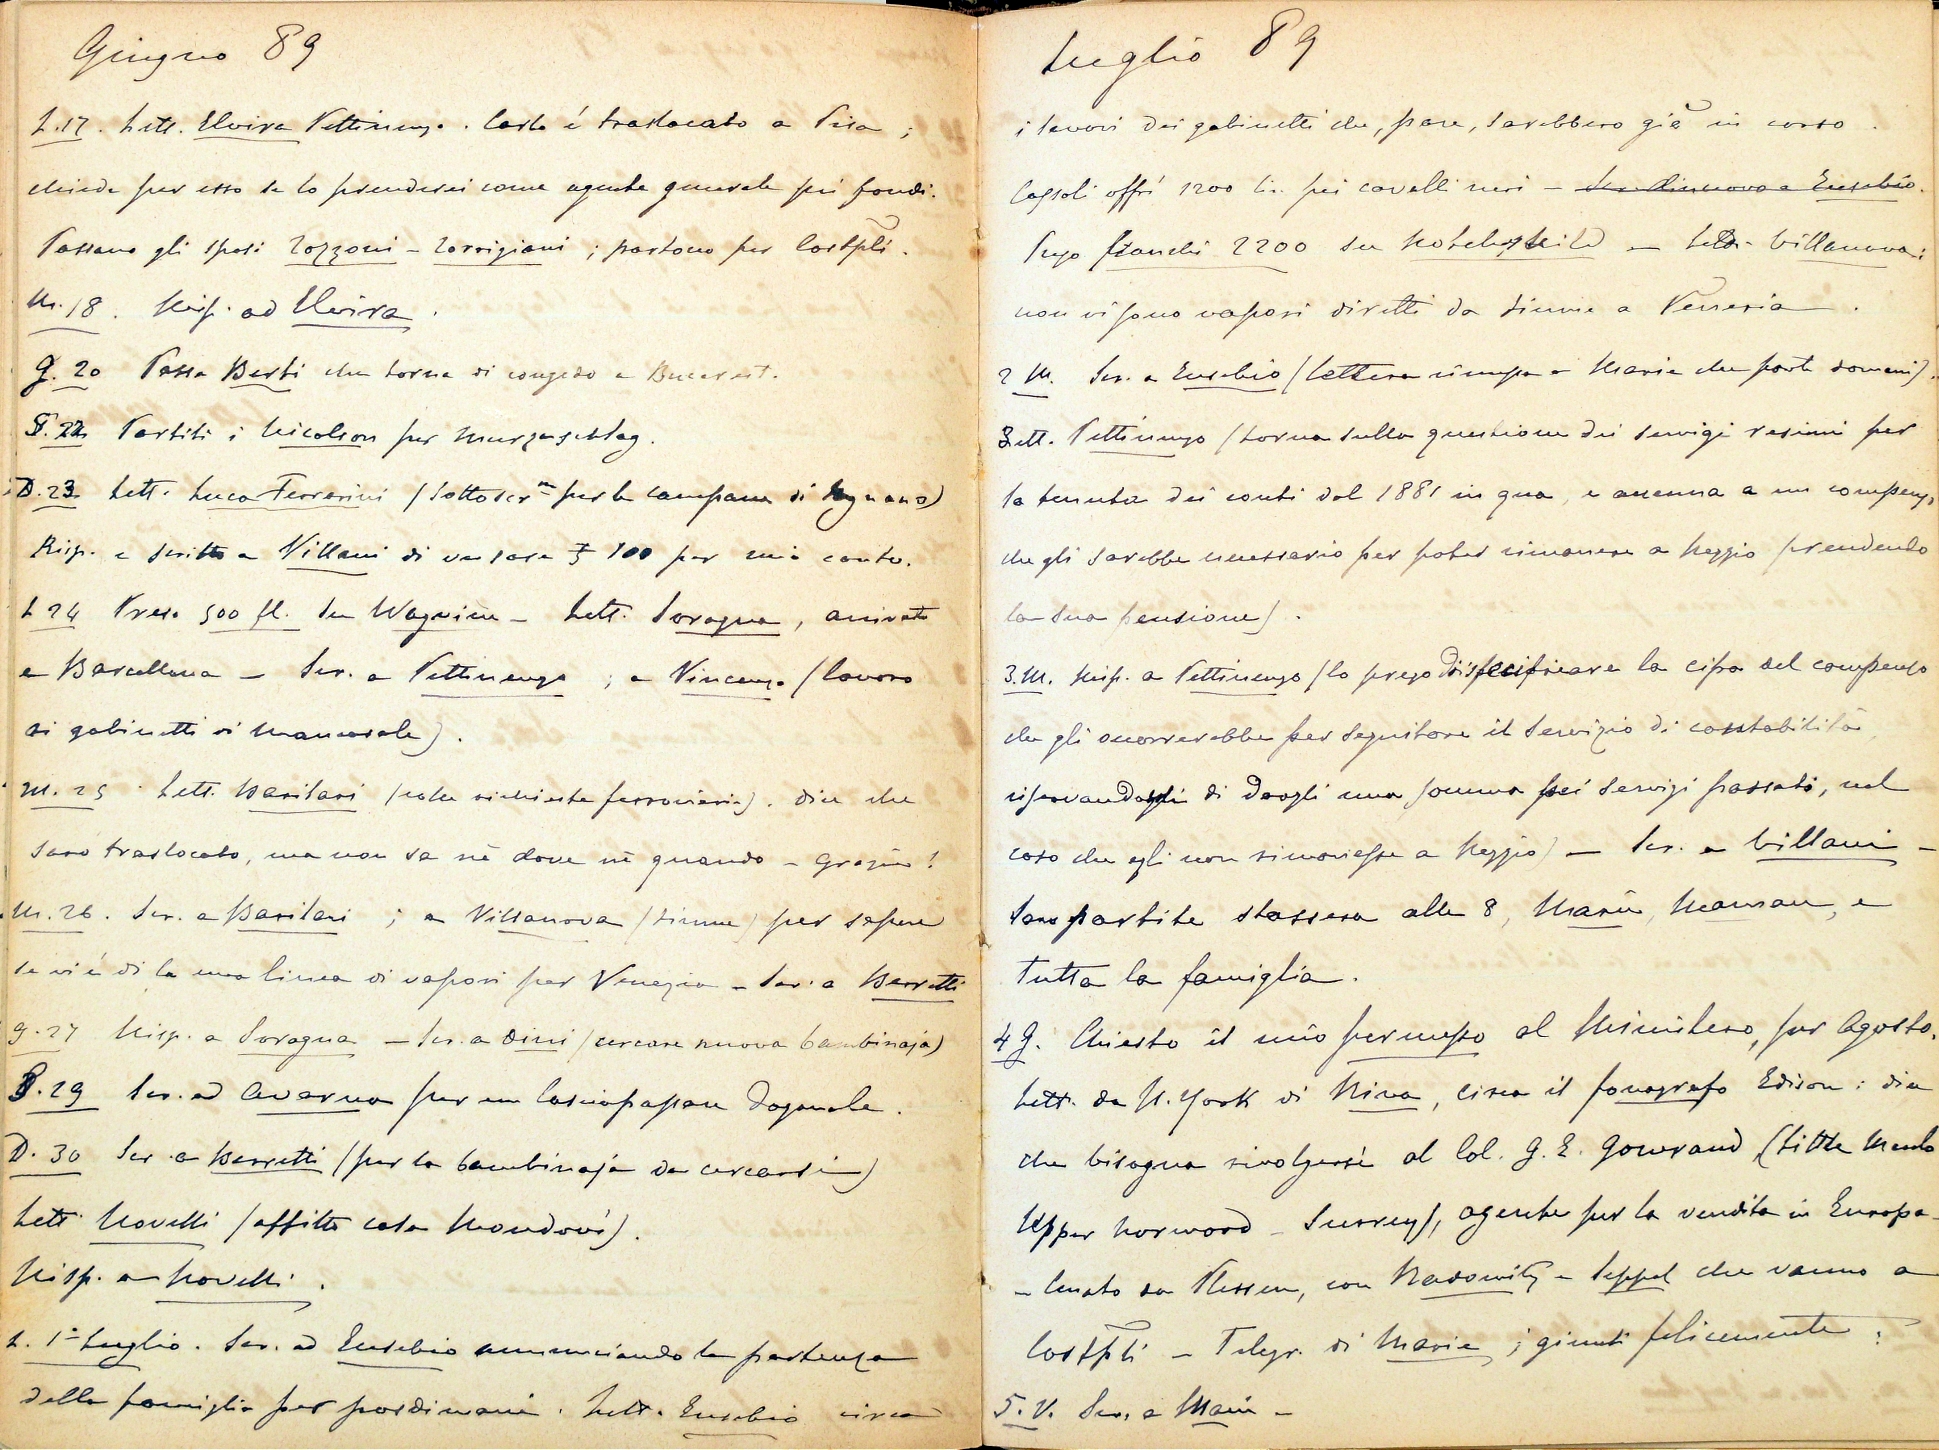 Giugno 89
L.17. Lett. Elvira Pettinengo. Carlo é traslocato a Pisa;
chiede per esso se lo prenderei come agente generale pei fondi.
Passano gli sposi Zozzoni - Zorrigiani; partono per Costpli.
M. 18. Risp. ad Elvira.
G. 20 Passa Berti che torna di congedo a Bucarest.
S. 22 Partiti i Nicolson per Murzuschlag.
D. 23 Lett. Luca Ferrarini (sottoscrne per la campana di Rognano)
Risp. e scritto a Villani di versare £ 100 per mio conto.
L 24 Preso 500 fl. su Wagnière - Lett. Soragna, arrivato
a Barcellona - Scr. a Pettinengo; a Vincenzo (lavoro
di gabinetti di Mancasale).
M. 25 Lett. Barilari (note richieste ferroviarie). Dice che
sarò traslocato, ma non sa nè dove nè quando - Grazie!
M. 26. Scr. a Barilari; a Villanova (Fiume) per sapere
se vi é di là una linea di vapori per Venezia - Scr. a Berretti
G. 27 Risp. a Soragna - Scr. a Dini (cercare nuova bambinaja)
S. 29 Scr. ad Avarna per un lasciapassare doganale.
D. 30 Scr. a Berretti (per la bambinaja da cercarsi)
Lett. Novelli (affitto casa Mondovì).
Risp. a Novelli.
L. 1° Luglio. Scr. ad Eusebio annunciando la partenza
della famiglia per posdimani. Lett. Eusebio circa
Luglio 89
i lavori dei gabinetti che, pare, sarebbero già in corso.
Cassoli offrì 1200 lir. pei cavalli neri - Eusebio.
franchi 2200 su Rothschild - Lett. Villanova:
non vi sono vapori diretti da Fiume a Venezia.
2 M. Scr. a Eusebio (lettera rimessa a Maria che parte domani).
Lett. Pettinengo (torna sulla questione dei servigi resimi per
la tenuta dei conti dal 1881 in qua, e accenna a un compenso
che gli sarebbe necessario per poter rimanere a Reggio prendendo
la sua pensione).
3. M. Risp. a Pettinengo (lo prego di specificare la cifra del compenso
che gli occorrerebbe per seguitare il servizio di contabilità,
riservandogli di dargli una somma pei servigi passati, nel
caso che egli non rimanesse a Reggio) - Scr. a Villani -
Sono partite stassera alle 8, Maria, Maman, e
tutta la famiglia.
4 G. Chiesto il mio permesso al Ministero, per Agosto.
Lett. da N. York di Riva, circa il fonografo Edison: dice
che bisogna rivolgersi al Col. G. E. Gouraud, (Little Menlo
Upper Norwood - Surrey), agente per la vendita in Europa -
- Cenato da Plessen, con Radowitz - Seppel che vanno a
Costpli - Telegr. di Maria; giunti felicemente.
5. V. Scr. a Maria -